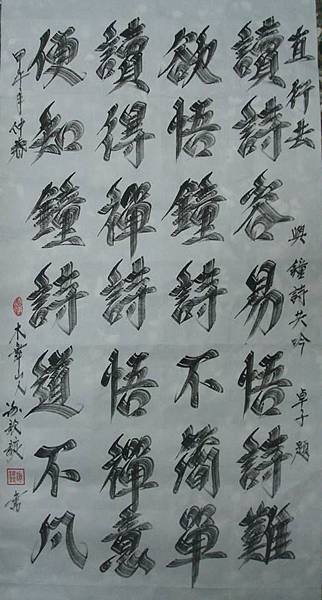 直行去 與鐘詩共吟 卓子題
讀詩容易悟詩難
欲悟鐘詩不簡單
讀得禪詩悟禪意
便知鐘詩道不凡
甲午年仲春 山人 書